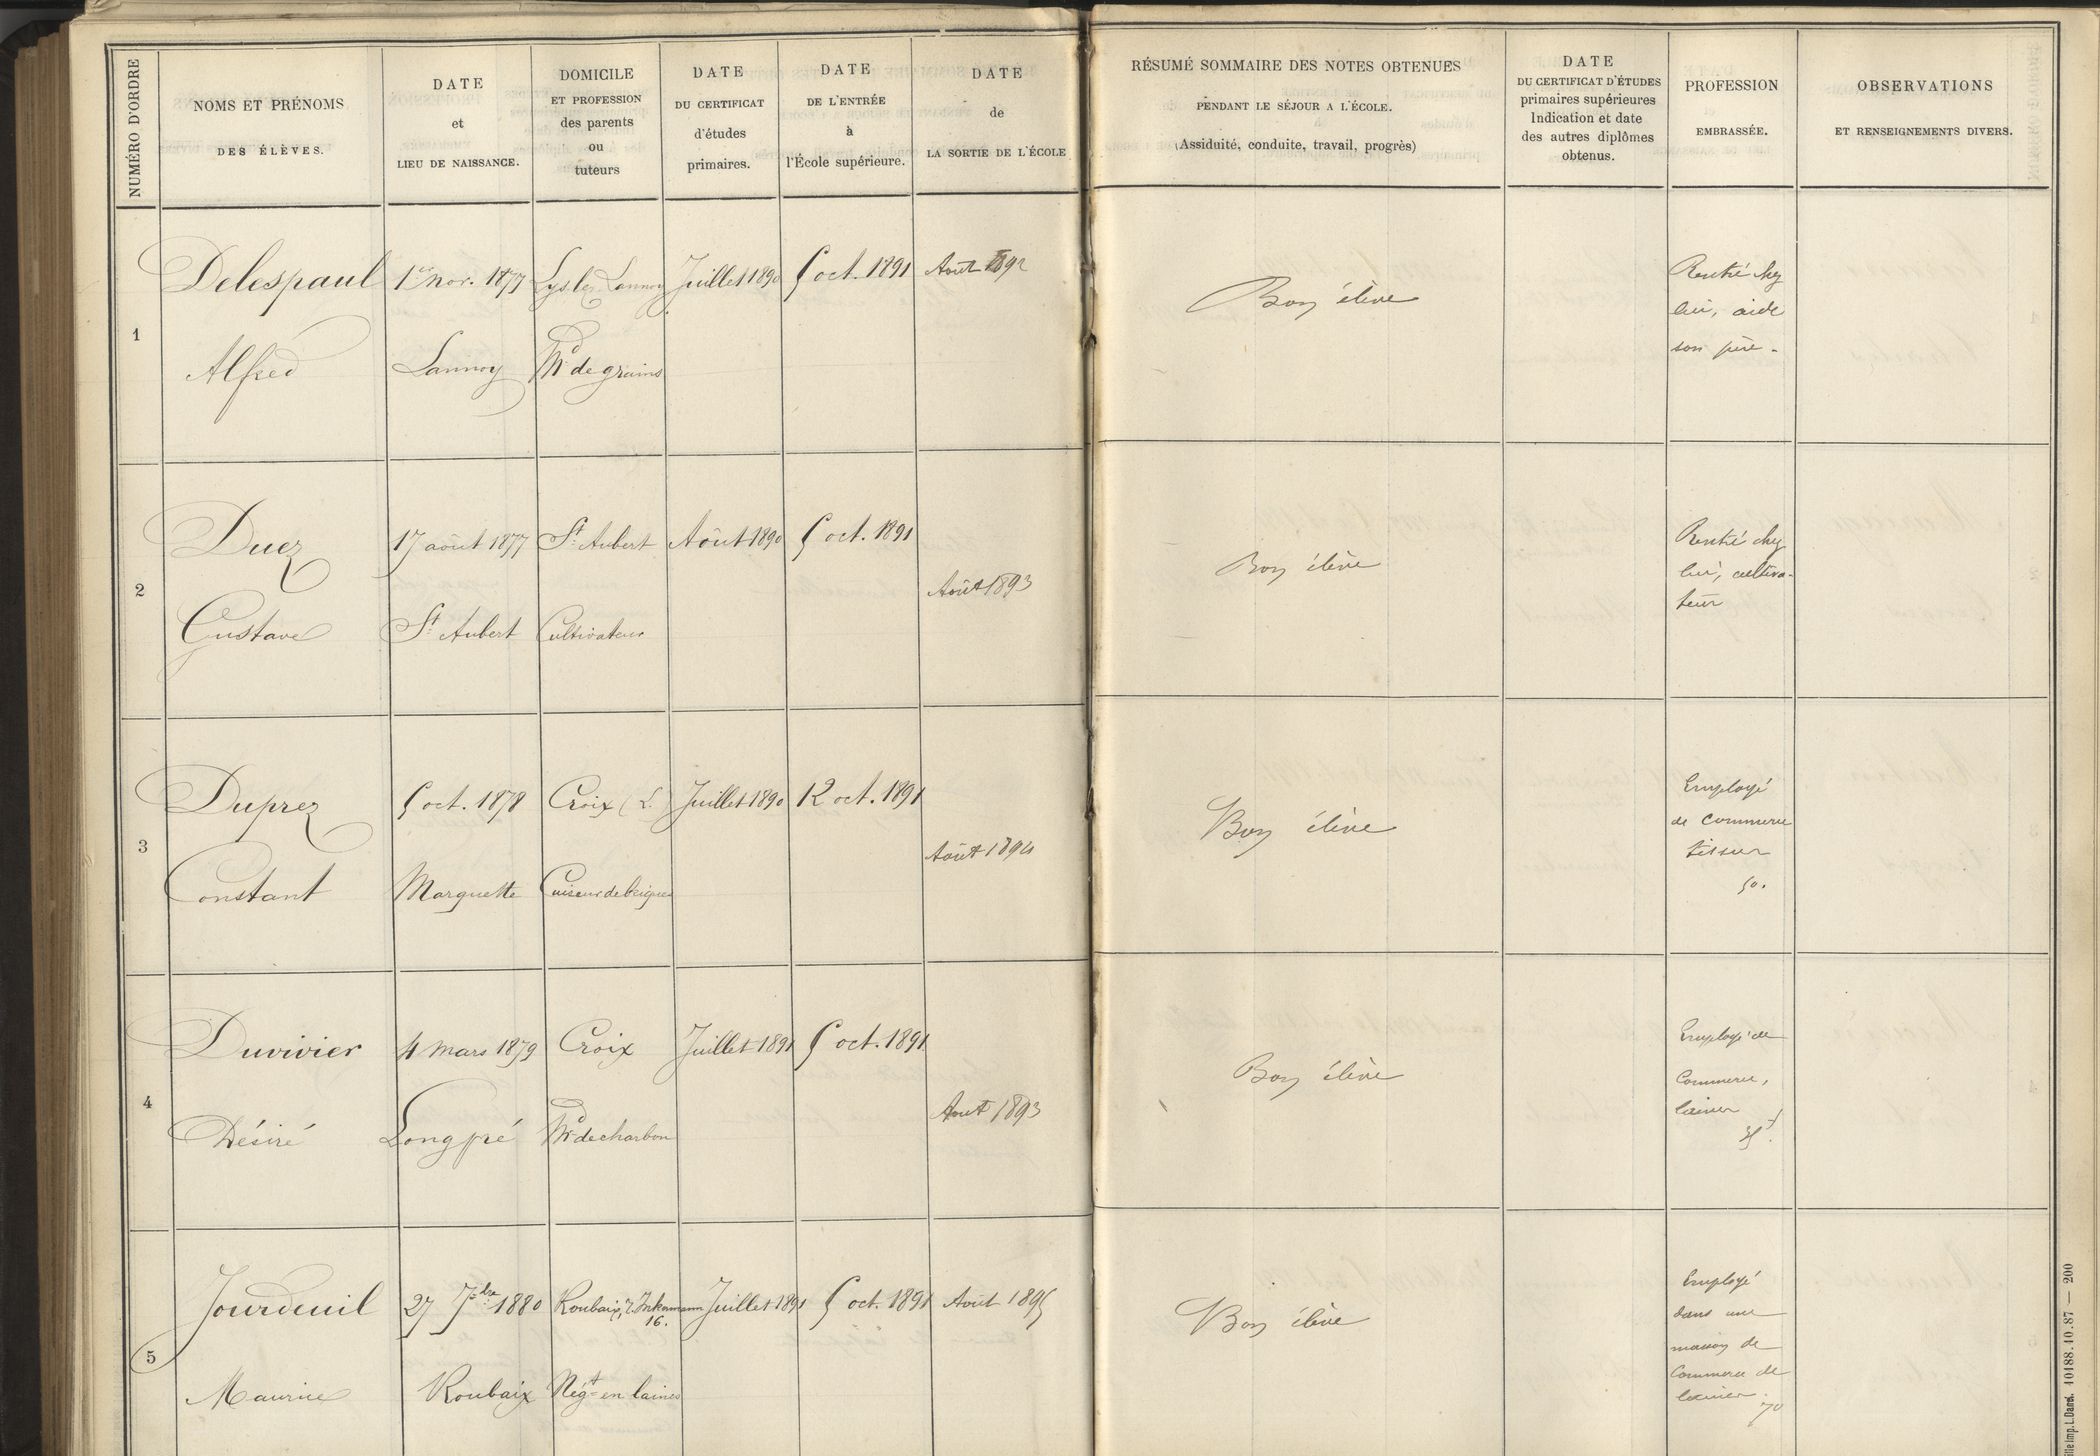 NUMÉRO D'ORDRE
NOMS ET PRÉNOMS
DES ÉLÈVES.
DATE
et
LIEU DE NAISSANCE.
DOMICILE
ET PROFESSION
des parents
ou
tuteurs
DATE
DU CERTIFICAT
d'études
primaires.
DATE
DE L'ENTRÉE
à
l'École supérieure.
DATE
de
LA SORTIE DE L'ÉCOLE
RÉSUMÉ SOMMAIRE DES NOTES OBTENUES
PENDANT LE SÉJOUR A L'ÉCOLE.
(Assiduité, conduite, travail, progrès)
DATE
DU CERTIFICAT D'ÉTUDES
primaires supérieures
Indication et date
des autres diplômes
obtenus.
PROFESSION
EMBRASSÉE.
OBSERVATIONS
ET RENSEIGNEMENTS DIVERS.
1
Delespaul
Alfred
1er nov. 1877
Lannoy
Lys lez Lannoy
Md de grains
Juillet 1890
5 oct. 1891
Août 1892
Bon élève
Rentré chez
lui, aide
son père.
2
Duez
Gustave
17 août 1877
St Aubert
St Aubert
Cultivateur
Août 1890
5 oct. 1891
Août 1893
Bon élève
Rentré chez
lui, cultiva-
teur
3
Duprez
Constant
5 oct. 1878
Marquette
Croix (L.)
Cuiseur de briques
Juillet 1890
12 oct. 1891
Août 1894
Bon élève
Employé
de commerce
tissus
50.
4
Duvivier
Désiré
4 mars 1879
Longpré
Croix
Md de charbon
Juillet 1891
5 oct. 1891
Aout 1893
Bon élève
Employé de
Commerce,
laines
5
Jourdeuil
Maurice
27 7bre 1880
Roubaix
Roubaix, r. Inkermann
16.
Négt en laines
Juillet 1891
5 oct. 1891
Août 1895
Bon élève
Employé
dans une
maison de
Commerce de
laines.
70
Imp. L. Danel. 10188.10.87 — 200